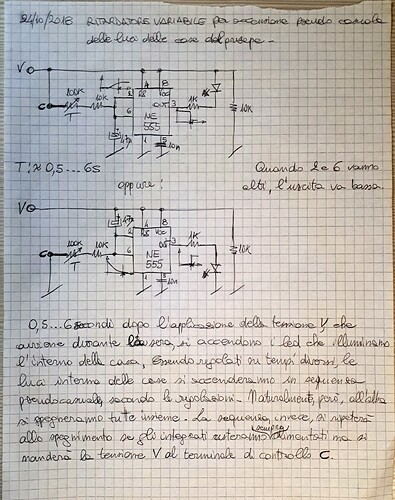 24/10/2018 RITARDATORE VARIABILE per accensione pseudo casuale
delle luci delle case del presepe -
V
100K
10K
C
T
2
6
4
8
RS
VCC
OUT
3
NE
555
1
5
10n
47µ
1K
10K
T: ≈ 0,5 ... 6S
oppure:
Quando 2 e 6 vanno
alti, l'uscita va bassa.
V
47µ
100K
10K
C
T
2
6
4
8
RS
VCC
OUT
3
NE
555
1
5
10n
1K
10K
0,5...6 secondi dopo l'applicazione della tensione V che
avviene durante la sera, si accendono i led che illuminano
l'interno della casa, essendo regolati su tempi diversi, le
luci interne delle case si accenderanno in sequenza
pseudocasuale, secondo le regolazioni. Naturalmente, però, all'alba
si spegneranno tutte insieme. La sequenza, invece, si ripeterà
allo spegnimento se gli integrati resteranno sempre alimentati ma si
manderà la tensione V al terminale di controllo C.